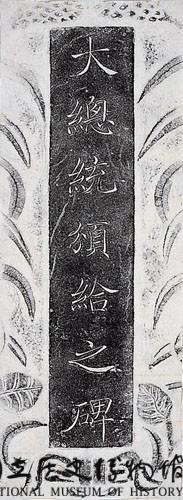 大總統頒給之碑
國立歷史博物館
NATIONAL MUSEUM OF HISTORY